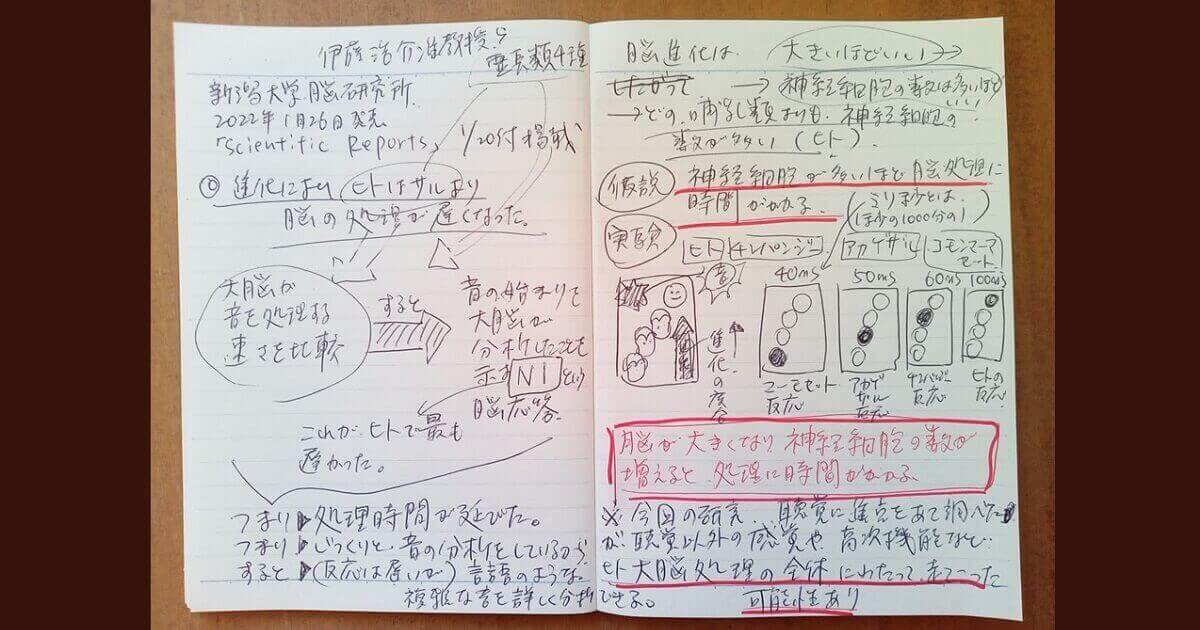 伊藤浩介准教授ら
霊長類4種
新潟大学脳研究所
2022年1月26日発表
「Scientific Reports」 1/20付掲載
◎ 進化により ヒトはサルより
脳の処理が遅くなった。
大脳が
音を処理する
速さを比較
すると
音の始まりを
大脳が
分析したことを
示す N1 という
脳応答
これが ヒトで最も
遅かった。
つまり 処理時間が延びた。
つまり じっくりと、音の分析をしているから
すると (反応は遅いが) 言語のような
複雑な音を詳しく分析できる。
脳進化は 大きいほどいい →
したがって → 神経細胞の数は多いほど
いい
→ どの ほ乳類よりも 神経細胞の
数が多い (ヒト).
仮説 神経細胞が多いほど 脳処理に
時間がかかる
(ミリ秒とは
1秒の1000分の1)
実験 ヒト チンパンジー アカゲザル コモンマーモセット
音
進化の度合
40ms 50ms 60ms 100ms
コモンマーモセット
反応
アカゲザル
反応
チンパンジー
反応
ヒトの
反応
脳が大きくなり 神経細胞の数が
増えると 処理に時間がかかる
※ 今回の研究 聴覚に焦点をあて調べた
が 聴覚以外の感覚や 高次機能など
ヒト大脳処理の全体にわたって 起こった
可能性あり